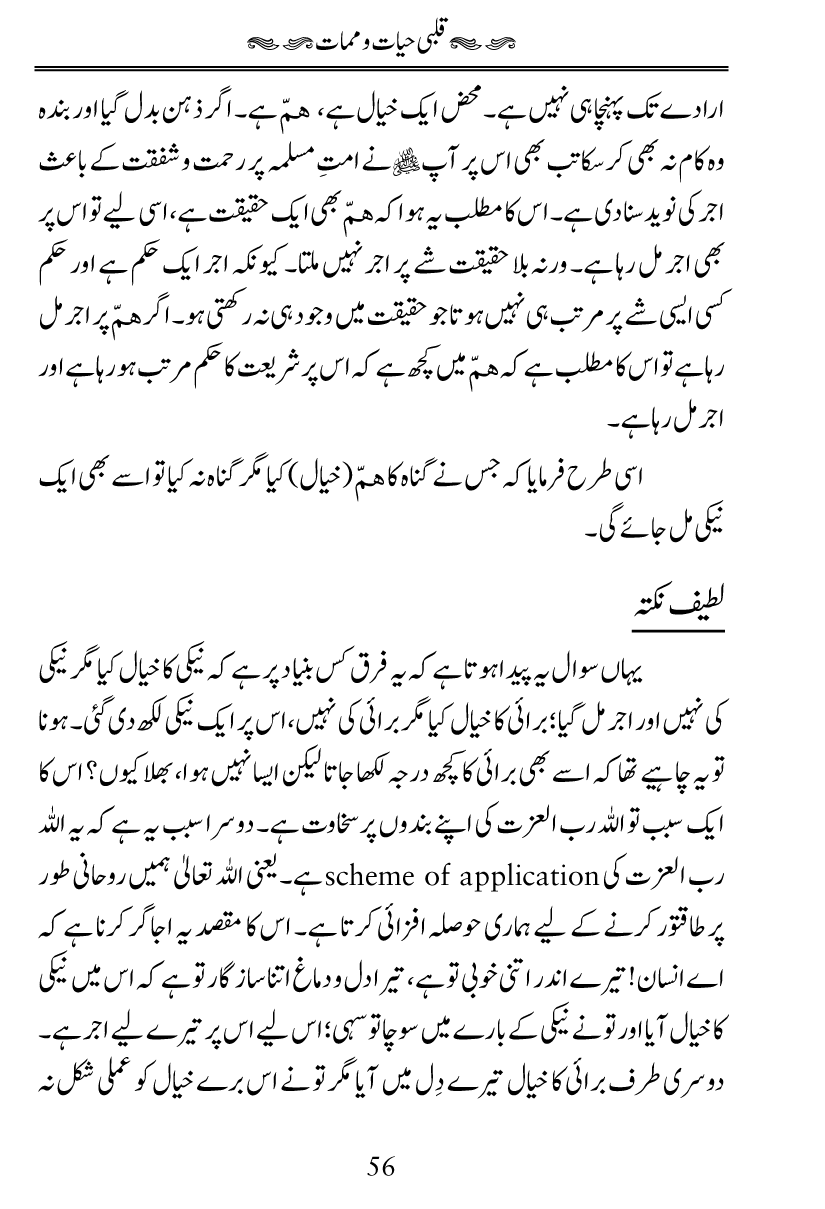 قلبی حیات و ممات
ارادے تک پہنچا ہی نہیں ہے۔ محض ایک خیال ہے، ھمّ ہے۔ اگر ذہن بدل گیا اور بندہ
وہ کام نہ بھی کر سکا تب بھی اس پر آپ ﷺ نے امتِ مسلمہ پر رحمت و شفقت کے باعث
اجر کی نوید سنا دی ہے۔ اس کا مطلب یہ ہوا کہ ھمّ بھی ایک حقیقت ہے، اسی لیے تو اس پر
بھی اجر مل رہا ہے۔ ورنہ بلا حقیقت شے پر اجر نہیں ملتا۔ کیونکہ اجر ایک حکم ہے اور حکم
کسی ایسی شے پر مرتب ہی نہیں ہوتا جو حقیقت میں وجود ہی نہ رکھتی ہو۔ اگر ھمّ پر اجر مل
رہا ہے تو اس کا مطلب ہے کہ ھمّ میں کچھ ہے کہ اس پر شریعت کا حکم مرتب ہو رہا ہے اور
اجر مل رہا ہے۔
اسی طرح فرمایا کہ جس نے گناہ کا ھمّ (خیال) کیا مگر گناہ نہ کیا تو اسے بھی ایک
نیکی مل جائے گی۔
لطیف نکتہ
یہاں سوال یہ پیدا ہوتا ہے کہ یہ فرق کس بنیاد پر ہے کہ نیکی کا خیال کیا مگر نیکی
کی نہیں اور اجر مل گیا؛ برائی کا خیال کیا مگر برائی کی نہیں، اس پر ایک نیکی لکھ دی گئی۔ ہونا
تو یہ چاہیے تھا کہ اسے بھی برائی کا کچھ درجہ لکھا جاتا لیکن ایسا نہیں ہوا، بھلا کیوں؟ اس کا
ایک سبب تو اللہ رب العزت کی اپنے بندوں پر سخاوت ہے۔ دوسرا سبب یہ ہے کہ یہ اللہ
رب العزت کی scheme of application ہے۔ یعنی اللہ تعالیٰ ہمیں روحانی طور
پر طاقتور کرنے کے لیے ہماری حوصلہ افزائی کرتا ہے۔ اس کا مقصد یہ اجاگر کرنا ہے کہ
اے انسان! تیرے اندر اتنی خوبی تو ہے، تیرا دل و دماغ اتنا ساز گار تو ہے کہ اس میں نیکی
کا خیال آیا اور تو نے نیکی کے بارے میں سوچا تو سہی؛ اس لیے اس پر تیرے لیے اجر ہے۔
دوسری طرف برائی کا خیال تیرے دِل میں آیا مگر تو نے اس برے خیال کو عملی شکل نہ
56